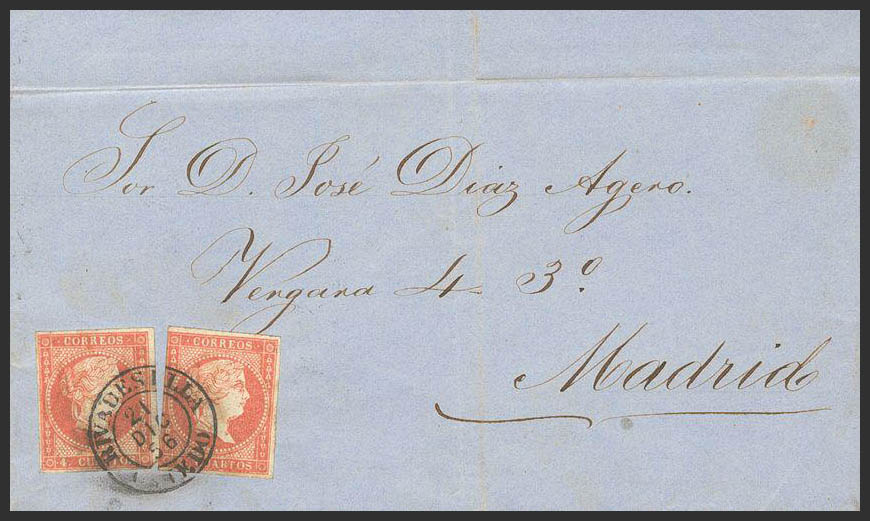 Sor D. José Diaz Agero.
Vergara 4 3º
Madrid
CORREOS
CORREOS
RIVADESELLA
21
DIC
56
4 CU
ARTOS